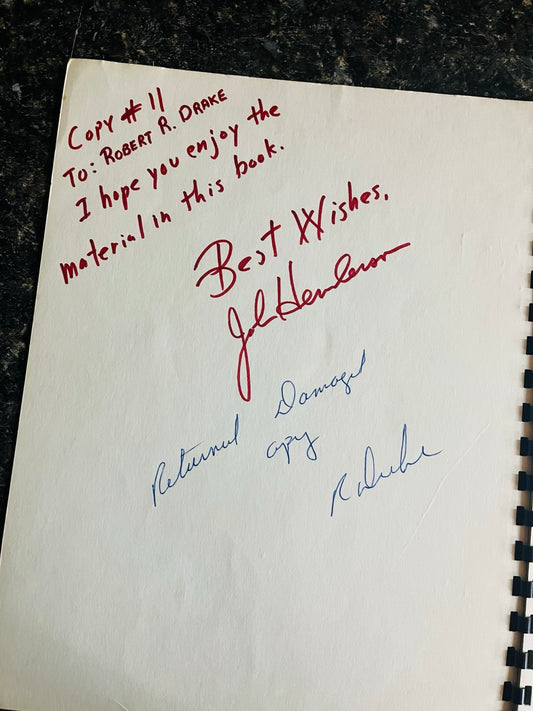 Copy # 11
To: ROBERT R. DRAKE
I hope you enjoy the
material in this book.
Best Wishes,
John Henderson
Returned Damaged
copy
R Drake